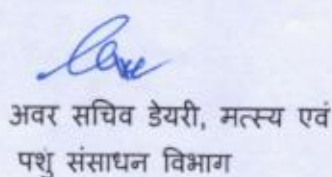 अवर सचिव डेयरी, मत्स्य एवं
पशु संसाधन विभाग